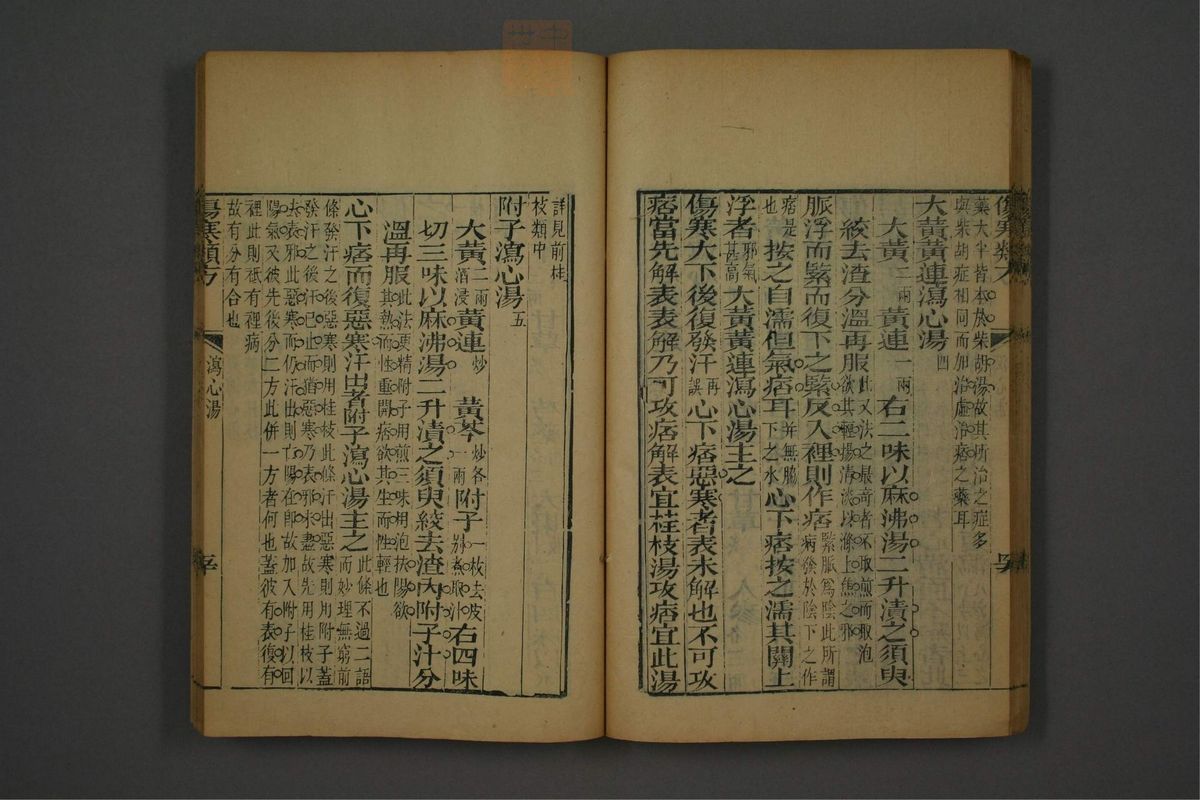 藥大半皆本於柴胡湯故其所治之症多
與柴胡症相同而加治虛治痞之藥耳
大黃黃連瀉心湯四
大黃二兩 黃連一兩 右二味以麻沸湯二升漬之須臾
絞去渣分溫再服此又法之最奇者不取煎而取泡
欲其輕揚清淡以滌上焦之邪
脈浮而緊而復下之緊反入裡則作痞緊脈為陰此所謂
病發於陰下之作
痞是
也按之自濡但氣痞耳並無脇
下之水心下痞按之濡其關上
浮者邪氣
甚高大黃黃連瀉心湯主之
傷寒大下後復發汗再
誤心下痞惡寒者表未解也不可攻
痞當先解表表解乃可攻痞解表宜桂枝湯攻痞宜此湯
詳見前桂
枝類中
附子瀉心湯五
大黃二兩
酒浸黃連炒 黃芩炒各
一兩附子一枚去皮
別煮取汁右四味
切三味以麻沸湯二升漬之須臾絞去渣內附子汁分
溫再服此法更精附子用煎三味用泡扶陽欲
其熱而性重開痞欲其生而性輕也
心下痞而復惡寒汗出者附子瀉心湯主之此條不過二語
而妙理無窮前
條發汗之後惡寒則用桂枝此條汗出惡寒則用附子蓋
發汗之後汗已止而猶惡寒乃表邪未盡故先用桂枝以
去表邪此惡寒而仍汗出則亡陽在即故加入附子以回
陽氣又彼先後分二方此併一方者何也蓋彼有表復有
裡此則祗有裡病
故有分有合也
傷寒類方
瀉心湯